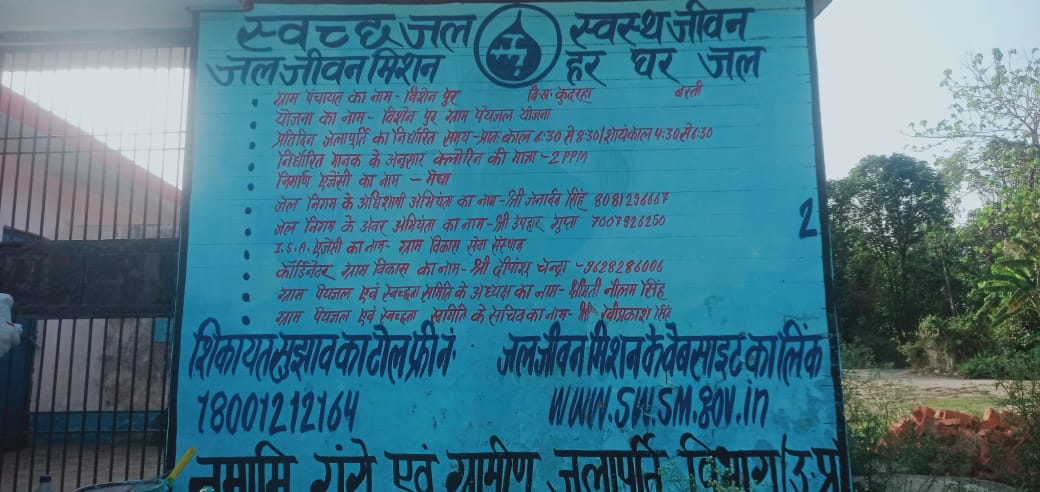 स्वच्छ जल स्वस्थ जीवन
जल जीवन मिशन हर घर जल
ग्राम पंचायत का नाम - विशेन पुर वि.ख. कुदरहा बस्ती
योजना का नाम - विशेन पुर ग्राम पेयजल योजना
प्रतिदिन जलापूर्ति का निर्धारित समय - प्रातःकाल 6:30 से 8:30/सायंकाल 4:30 से 6:30
निर्धारित मानक के अनुसार क्लोरिन की मात्रा - 2 PPM
निर्माण एजेंसी का नाम - मेघा
जल निगम के अधिशाषी अभियंता का नाम - श्री जनार्दन सिंह 8081296667
जल निगम के अवर अभियंता का नाम - श्री उपहार गुप्ता 7007926250
2
I.S.A. एजेंसी का नाम - ग्राम विकास सेवा संस्थान
कॉर्डिनेटर ग्राम विकास का नाम - श्री दीपांशु चन्द्रा - 9628286006
ग्राम पेयजल एवं स्वच्छता समिति के अध्यक्ष का नाम - श्रीमती नीलम सिंह
ग्राम पेयजल एवं स्वच्छता समिति के सचिव का नाम - श्री रविप्रकाश सिंह
शिकायत सुझाव का टोल फ्री नं. जल जीवन मिशन के वेबसाइट का लिंक
18001212164 WWW.SWSM.gov.in
नमामि गंगे एवं ग्रामीण जलापूर्ति विभाग (उ.प्र.)